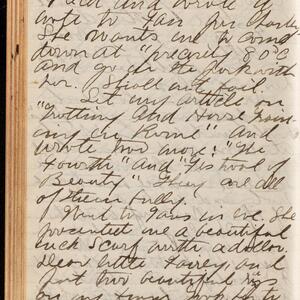 and wrote a
note to
She wants me to come
down at "precisely 8 o'c"
and go in the park with
her. I shall not fail.
Got my article on
"Trotting and Horse
in Rome" and
wrote two more: "The
Fourth" and "Festival of
Beauty" They are all
of them fully.
Went to in eve. She
presented me a beautiful
neck scarf with a dollar.
dear little and
put two beautiful
on my